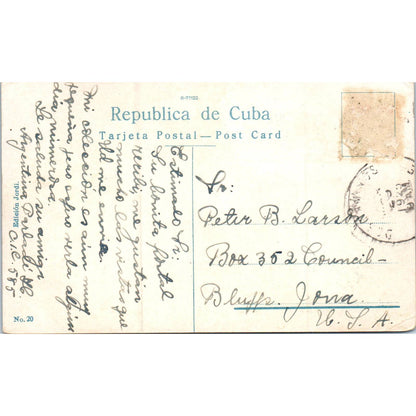 A-77122
Republica de Cuba
Tarjeta Postal — Post Card
Estimado Sr:
Su bonita Postal
recibi, me gustan
mucho las vistas que
Ud me envia.
Mi coleccion es aun muy
pequeña pero espero verla algun
dia numerosa
Le saluda su amigo
Argentino
Sr:
Peter B. Larson
Box 352 Council-
Bluffs. Iowa.
U. S. A.
Edición Jordi.
No. 20